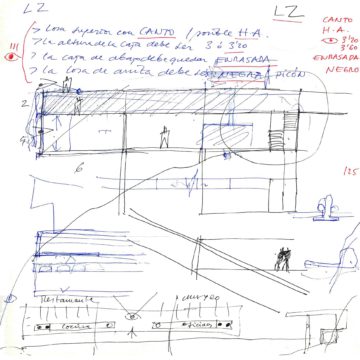 LZ
LZ
> Losa superior con CANTO / posible H.A.
> La altura de la caja debe ser 3 ó 3'20
> La caja de abajo debe quedar ENRASADA
> La losa de arriba debe ser NEGRA
CANTO
H.A.
3'20
3'60
ENRASADA
NEGRO
2
6
1/25
Restaurante
cocina